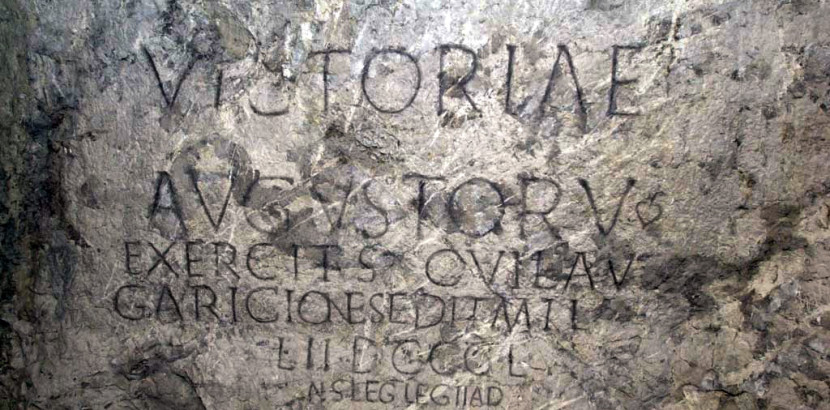 VICTORIAE
AVGVSTORV
EXERCITVS QVI LAV
GARICIONE SEDIT MIL
L II DCCCL
N S LEG LEG II AD